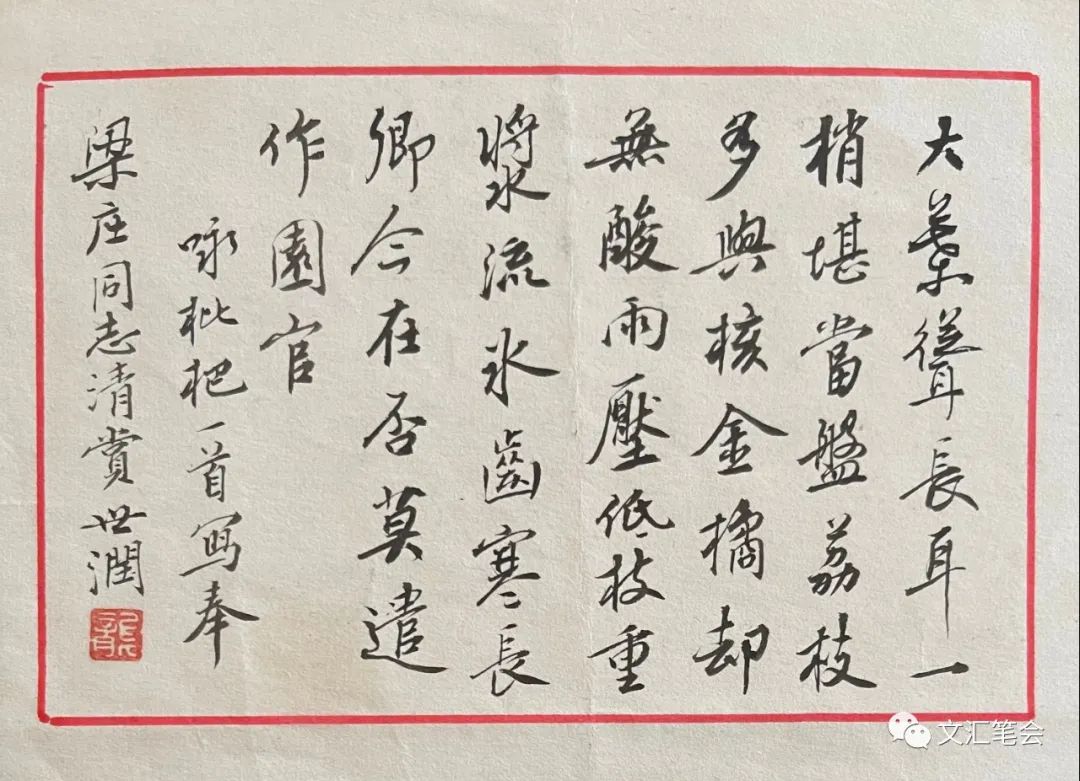 大葉聳長耳一
梢堪當盤荔枝
多與核金橘却
無酸雨壓低枝重
漿流氷齒寒長
卿今在否莫遣
作園官
咏枇杷一首寫奉
梁庄同志清賞世潤
文汇笔会